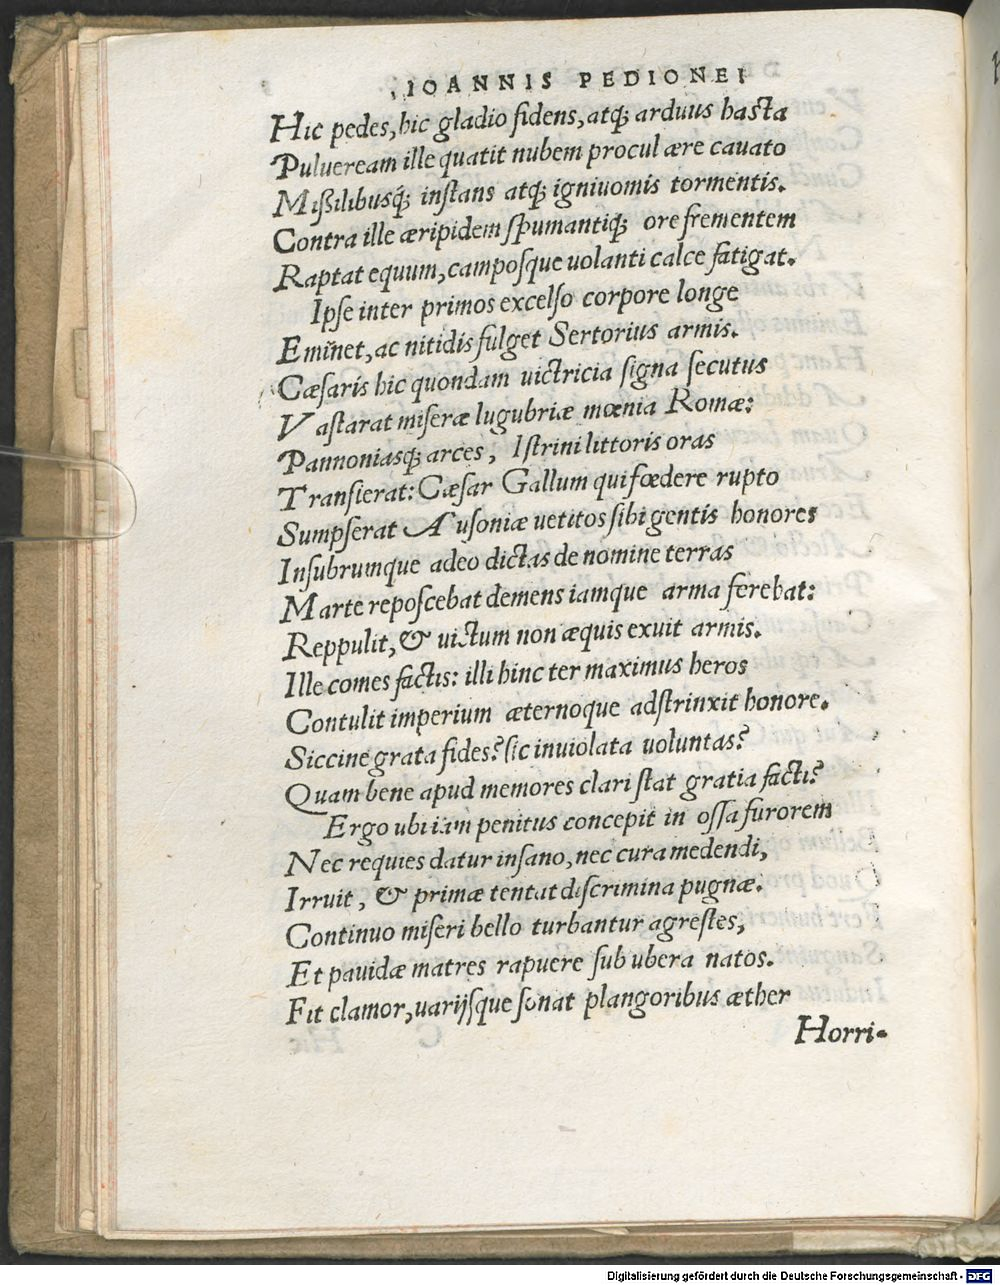 IOANNIS PEDIONEI
Hic pedes, hic gladio fidens, atq; arduus hasta
Pulueream ille quatit nubem procul ære cauato
Mißilibusq́; instans atq; igniuomis tormentis.
Contra ille æripidem spumantiq; ore frementem
Raptat equum, camposque uolanti calce fatigat.
Ipse inter primos excelso corpore longe
Eminet, ac nitidis fulget Sertorius armis.
Cæsaris hic quondam uictricia signa secutus
Vastarat miseræ lugubriæ mœnia Romæ:
Pannoniasq; arces, Istrini littoris oras
Transierat: Cæsar Gallum qui fœdere rupto
Sumpserat Ausoniæ uetitos sibi gentis honores
Insubrumque adeo dictas de nomine terras
Marte reposcebat demens iamque arma ferebat:
Reppulit, & uictum non æquis exuit armis.
Ille comes factis: illi hinc ter maximus heros
Contulit imperium æternoque adstrinxit honore.
Siccine grata fides? sic inuiolata uoluntas?
Quam bene apud memores clari stat gratia facti?
Ergo ubi iam penitus concepit in ossa furorem
Nec requies datur insano, nec cura medendi,
Irruit, & primæ tentat discrimina pugnæ.
Continuo miseri bello turbantur agrestes,
Et pauidæ matres rapuere sub ubera natos.
Fit clamor, uarijsque sonat plangoribus æther
Horri-
Digitalisierung gefördert durch die Deutsche Forschungsgemeinschaft - DFG